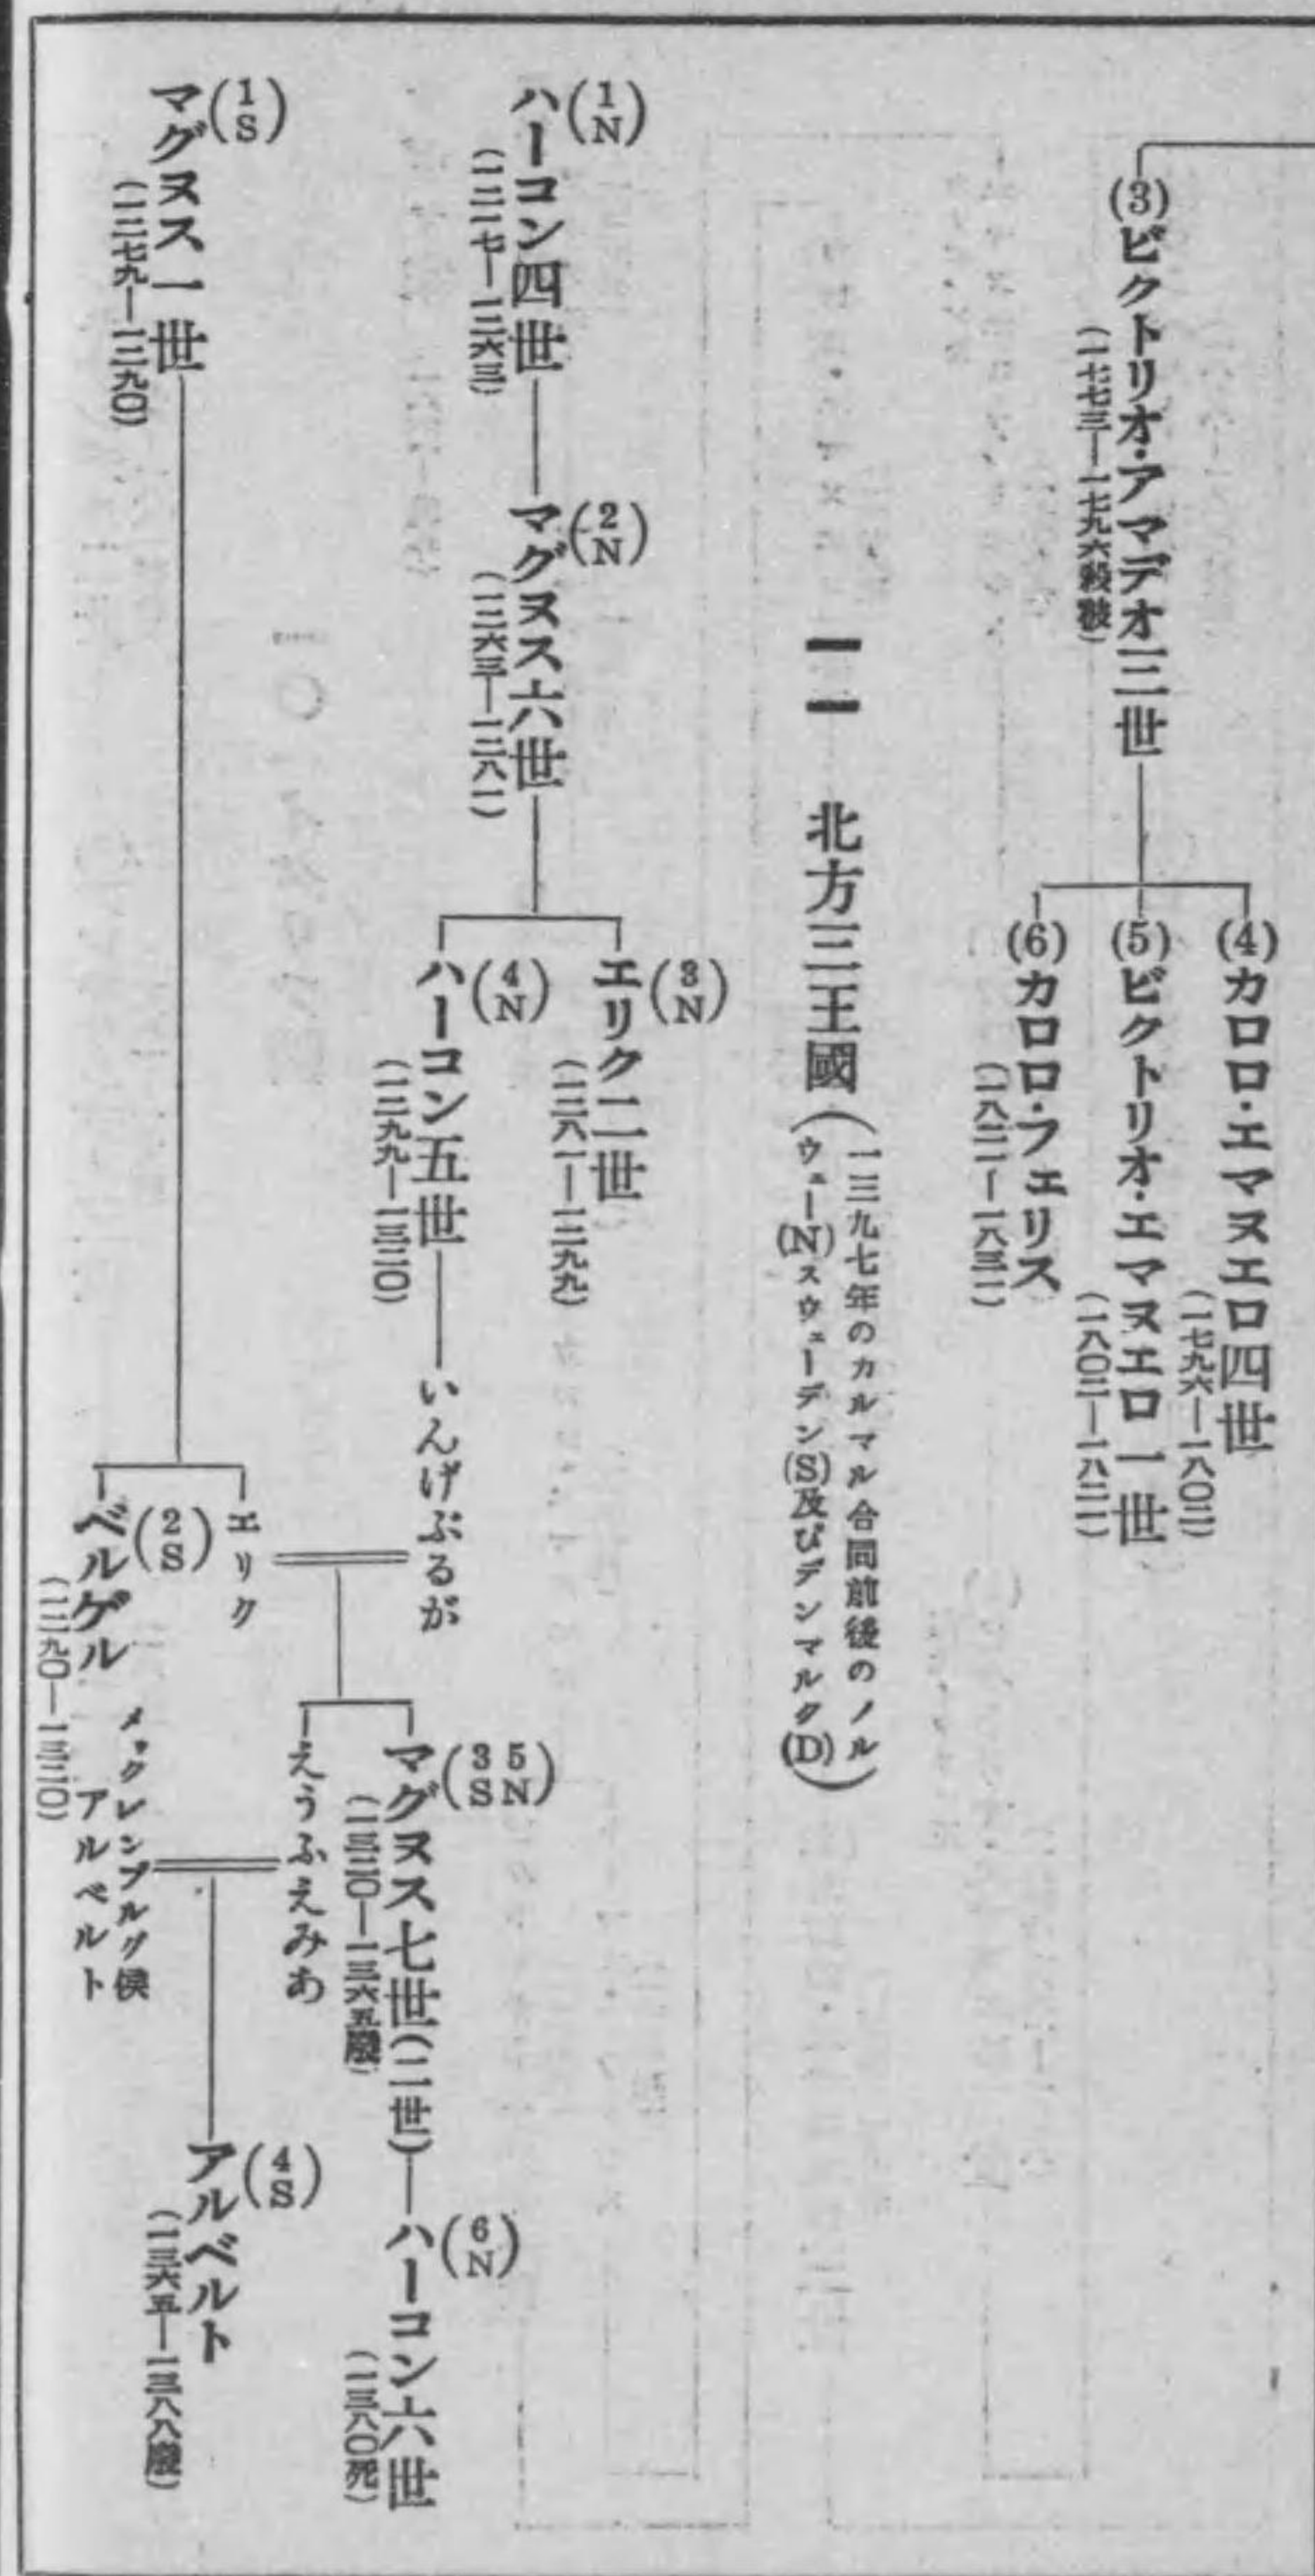 (3)ビクトリオ・アマデオ三世
(一七七三—一七九六殺害)
(4)カロロ・エマヌエロ四世
(一七九六—一八〇二)
(5)ビクトリオ・エマヌエロ一世
(一八〇二—一八二一)
(6)カロロ・フェリス
(一八二一—一八三一)
一一 北方三王國
(一三九七年のカルマル合同前後のノル
ウェー(N)スウェーデン(S)及びデンマルク(D))
(1N)
ハーコン四世
(一二一七—一二六三)
(2N)
マグヌス六世
(一二六三—一二八一)
(3N)
エリク二世
(一二八一—一二九九)
(4N)
ハーコン五世
(一二九九—一三二〇)
いんげぶるが
(3S 5N)
マグヌス七世(二世)
(一三二〇—一三六五廢)
(6N)
ハーコン六世
(一三八〇死)
えうふえみあ
(1S)
マグヌス一世
(一二七九—一二九〇)
エリク
(2S)
ベルゲル
(一二九〇—一三二〇)
メックレンブルグ侯
アルベルト
(4S)
アルベルト
(一三六五—一三八八廢)